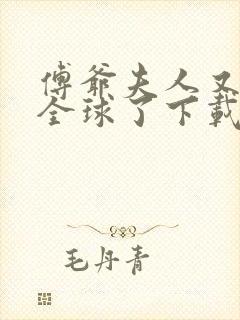 傅爺夫人又
全球了下載
毛丹青